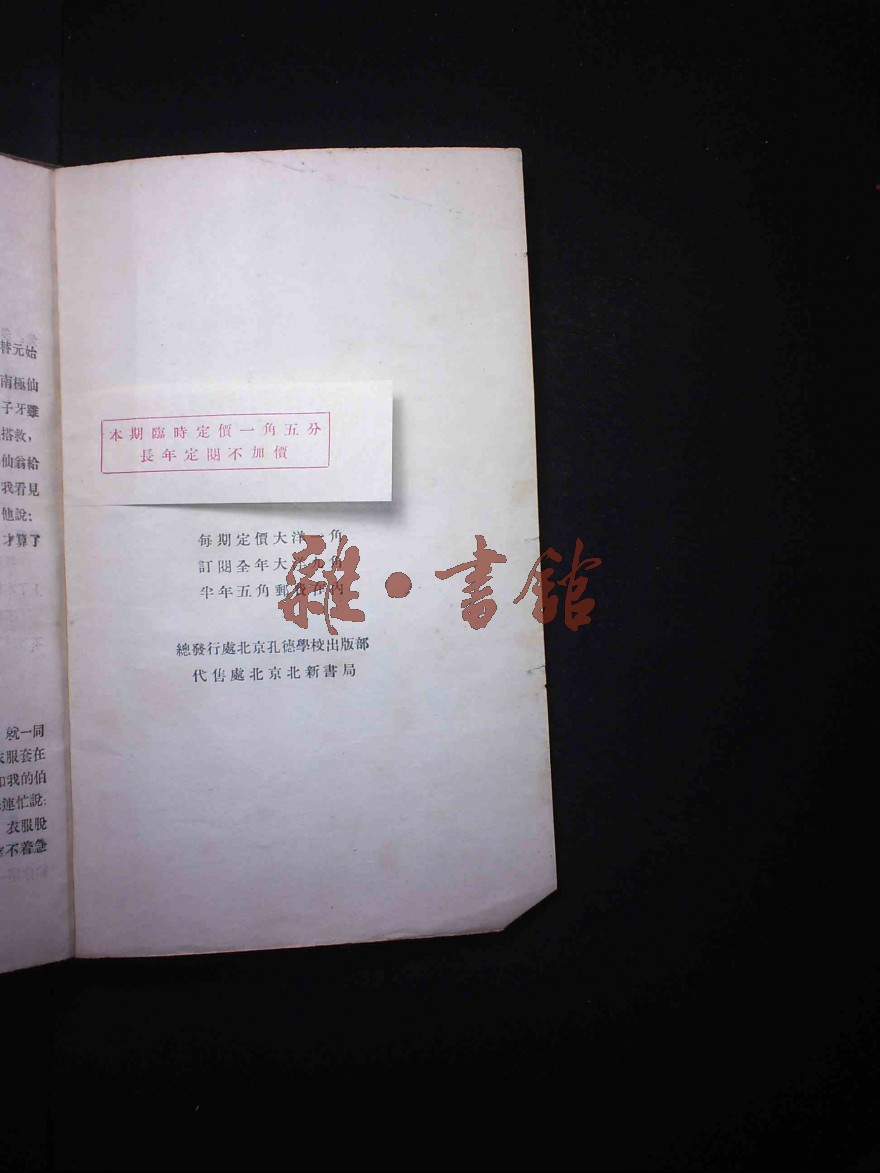 替元始
南極仙
子牙雖
搭救，
仙翁給
我看見
他說：
才算了
就一同
衣服套在
和我的伯
連忙說：
衣服脫
不着急
本期臨時定價一角五分
長年定閱不加價
每期定價大洋一角
訂閱全年大洋九角
半年五角郵費在內
總發行處北京孔德學校出版部
代售處北京北新書局
雜·書館